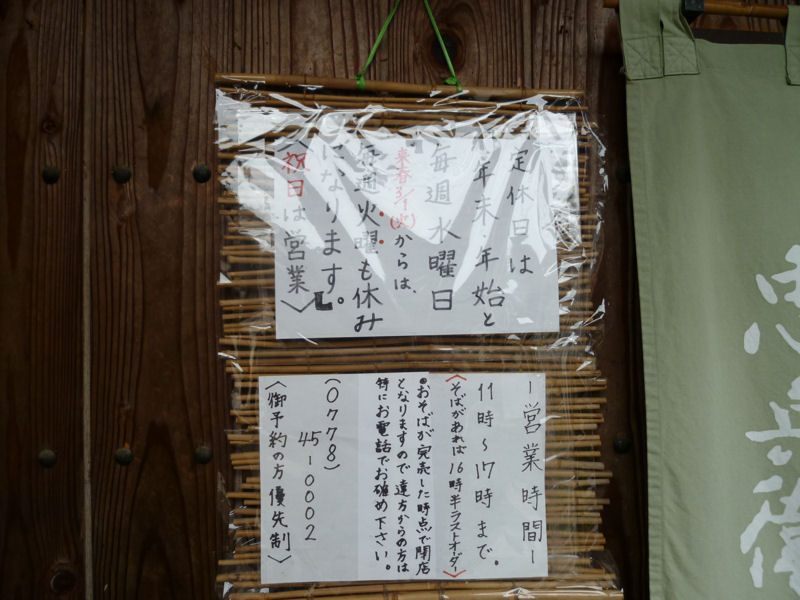 定休日は
年末・年始と
毎週水曜日
来春3/1(火)からは、
毎週火曜も休み
になります。
〈祝日は営業〉
ー営業時間ー
11時〜17時まで。
〈そばがあれば16時半ラストオーダー〉
◎おそばが完売した時点で閉店
となりますので遠方からの方は
特にお電話でお確め下さい。
(0778)
45-0002
〈御予約の方優先制〉
忠兵衛